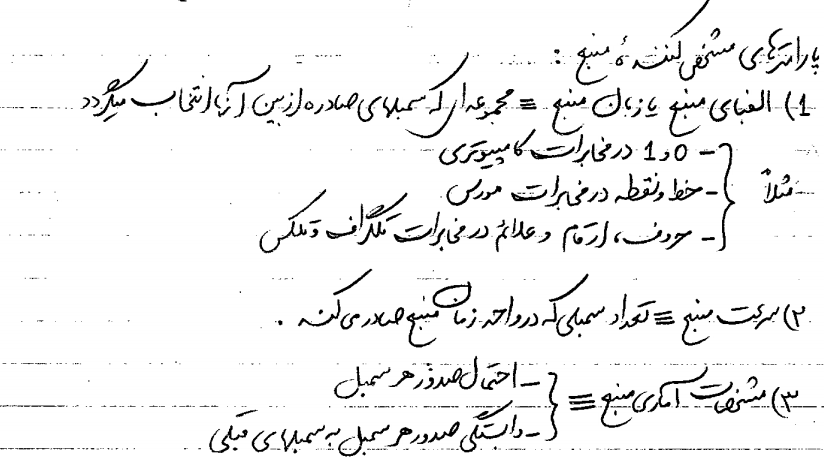 پارامترهای مشخص کننده منبع :
1) الفبای منبع یا زبان منبع ≡ مجموعه ای که سمبلهای صادره از بین آنها انتخاب میگردد
- 0 و 1 در مخابرات کامپیوتری
مثلاً { - خط و نقطه در مخابرات مورس
- حروف، ارقام و علائم در مخابرات تلگراف و تلکس
۲) سرعت منبع ≡ تعداد سمبلی که در واحد زمان منبع صادر می کند .
- احتمال صدور هر سمبل
۳) مشخصات آماری منبع ≡ {
- وابستگی صدور هر سمبل به سمبلهای قبلی